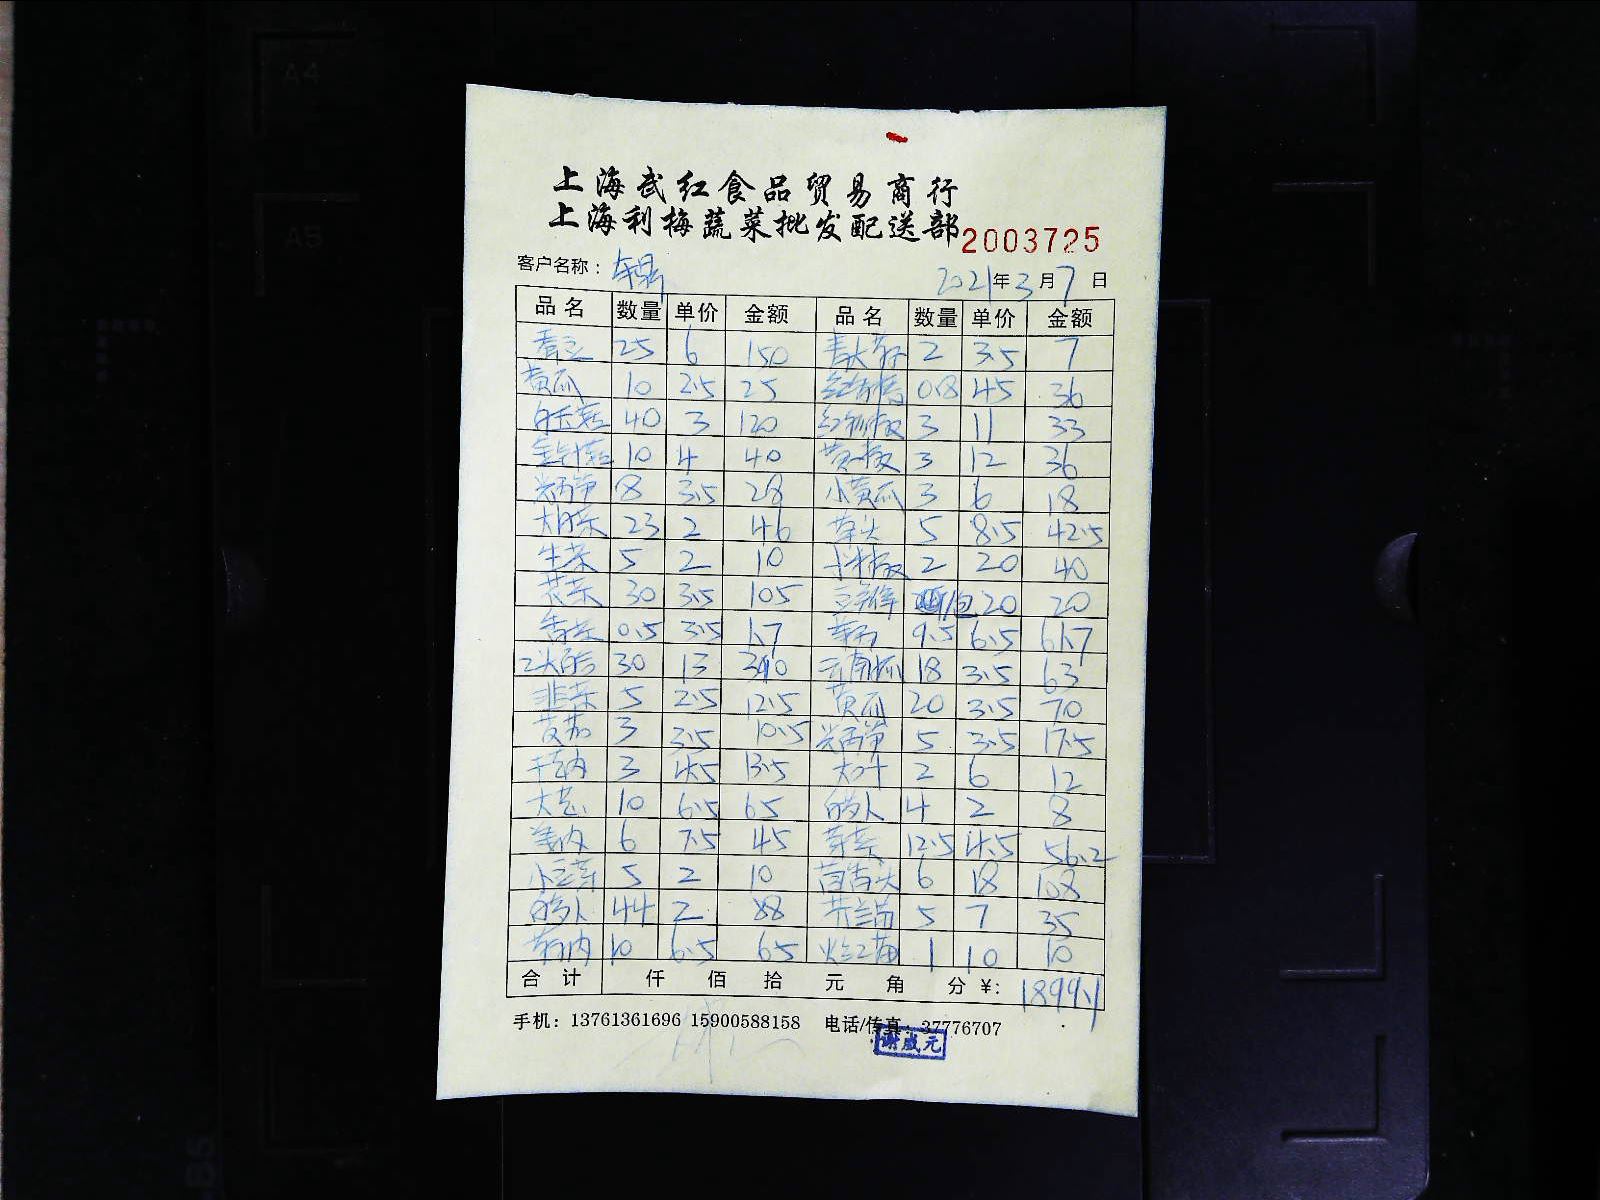 上海武红食品贸易商行
上海利梅蔬菜批发配送部 2003725
客户名称： 2021年3月7日
品名 数量 单价 金额 品名 数量 单价 金额
25 6 150 2 3.5 7
黄瓜 10 2.5 25 0.8 45 36
白玉菇 40 3 120 3 11 33
金针菇 10 4 40 黄椒 3 12 36
8 3.5 28 小黄瓜 3 6 18
大白菜 23 2 46 草头 5 8.5 42.5
生菜 5 2 10 小米椒 2 20 40
30 3.5 105 1包 20 20
香菜 0.5 3.5 1.7 9.5 6.5 61.7
30 13 390 18 3.5 63
韭菜 5 2.5 12.5 黄瓜 20 3.5 70
3 3.5 10.5 5 3.5 17.5
3 4.5 13.5 大叶 2 6 12
大葱 10 6.5 65 4 2 8
6 7.5 45 12.5 4.5 56.2
小豆芽 5 2 10 6 18 108
44 2 88 芥兰苗 5 7 35
10 6.5 65 1 10 10
合计 仟 佰 拾 元 角 分 ¥: 1899.1
手机：13761361696 15900588158 电话/传真：37776707
谢成元